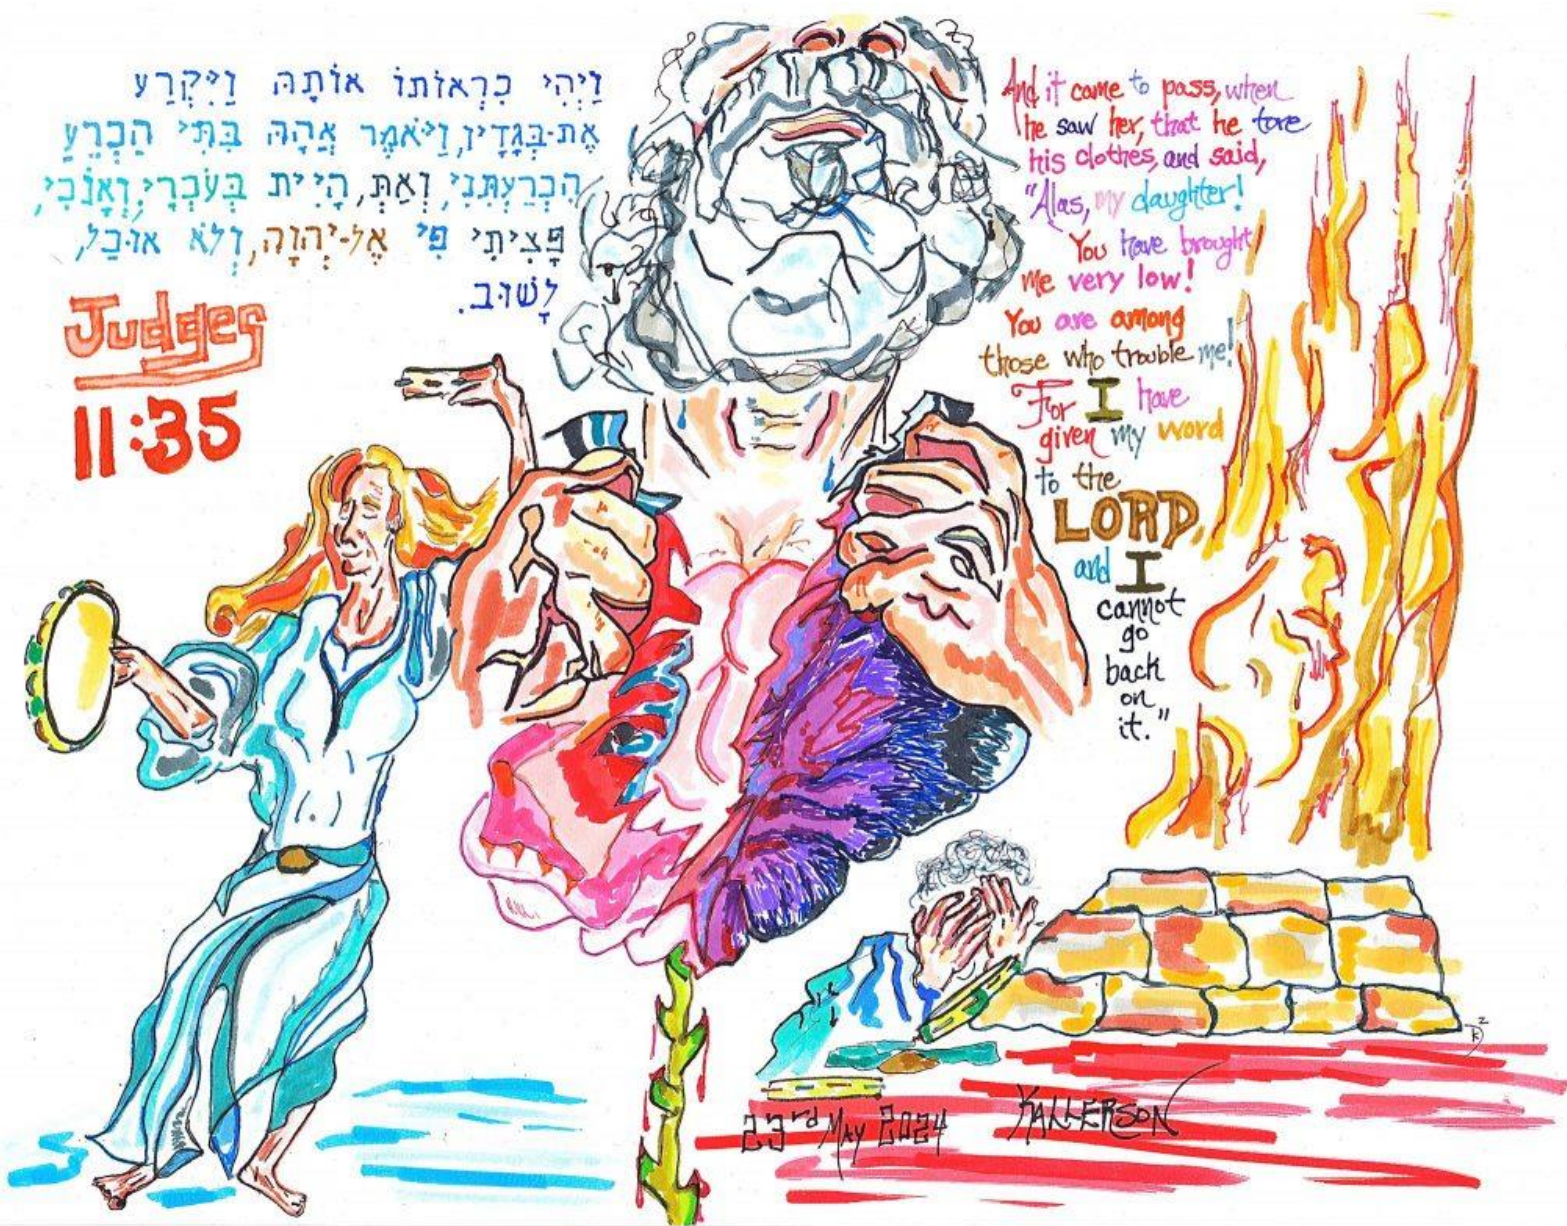 וַיְהִי כִרְאוֹתוֹ אוֹתָהּ וַיִּקְרַע
אֶת-בְּגָדָיו, וַיֹּאמֶר אֲהָהּ בִּתִּי הַכְרֵעַ
הִכְרַעְתִּנִי, וְאַתְּ, הָיִית בְּעֹכְרָי; וְאָנֹכִי,
פָּצִיתִי פִי אֶל-יְהוָה, וְלֹא אוּכַל,
לָשׁוּב.
Judges
11:35
And it came to pass, when
he saw her, that he tore
his clothes, and said,
"Alas, my daughter!
You have brought
me very low!
You are among
those who trouble me!
For I have
given my word
to the
LORD,
and I
cannot
go
back
on
it."
23rd May 2024 KALLERSON